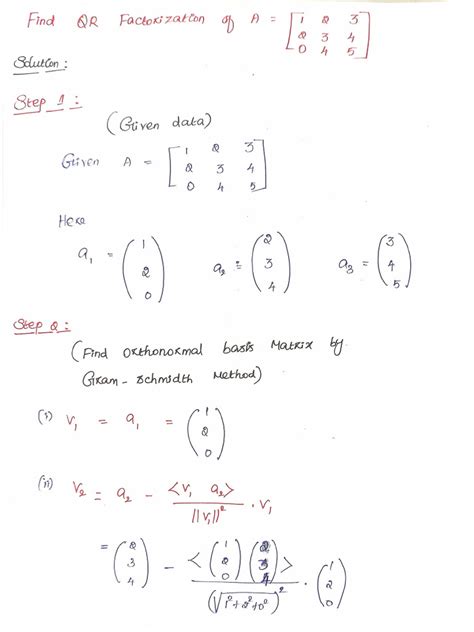 Find QR Factorization of A = [1 2 3
2 3 4
0 4 5]
Solution:
Step 1:
(Given data)
Given A = [1 2 3
2 3 4
0 4 5]
Here
a₁ = (1
2
0) a₂ = (2
3
4) a₃ = (3
4
5)
Step 2:
(Find orthonormal basis Matrix by
Gram-Schmidth Method)
(i) V₁ = a₁ = (1
2
0)
(ii) V₂ = a₂ - <V₁ a₂> / ||V₁||² · V₁
= (2
3
4) - <(1
2
0) (2
3
4)> / (√1²+2²+0²)² · (1
2
0)